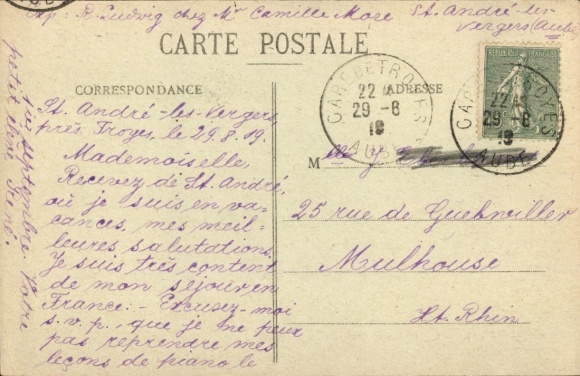 Exp. R. Ludwig chez Mr Camille More St. André-les-
Vergers (Aube)
CARTE POSTALE
CORRESPONDANCE
ADRESSE
St. André-les-Vergers
près Troyes, le 29.8.19.
Mademoiselle,
Recevez de St. André,
où je suis en va-
cances, mes meil-
leures salutations.
Je suis très content
de mon séjour en
France. - Excusez-moi
s.v.p., que je ne peux
pas reprendre mes
leçons de piano le
septembre. Votre
petit élève René.
GARE DE TROYES
22
29 - 8
19
AUBE
GARE DE TROYES
22
29 - 8
19
AUBE
REPUBLIQUE FRANÇAISE
Mlle J.
25 rue de Guebwiller
Mulhouse
Ht. Rhin